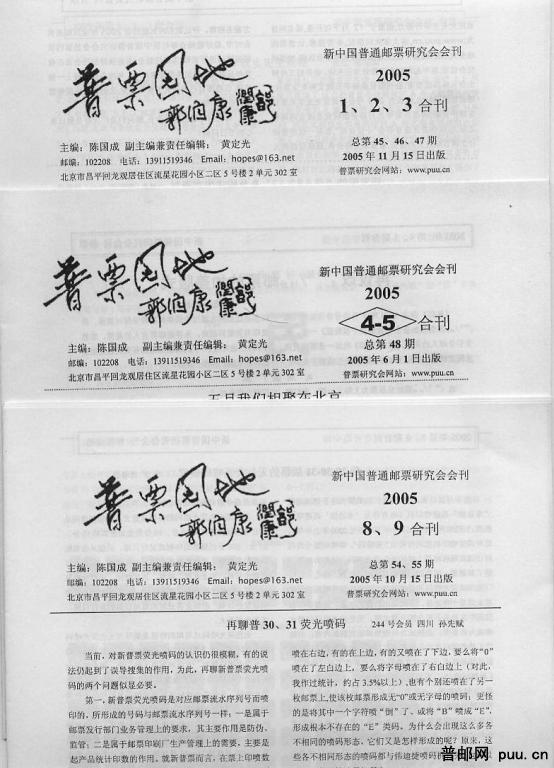 普票园地
郭润康
新中国普通邮票研究会会刊
2005
1、2、3 合刊
主编：陈国成 副主编兼责任编辑： 黄定光
邮编：102208 电话：13911519346 Email：hopes@163.net
北京市昌平回龙观居住区流星花园小区二区 5 号楼 2 单元 302 室
总第 45、46、47 期
2005 年 11 月 15 日出版
普票研究会网站：www.puu.cn
普票园地
郭润康
新中国普通邮票研究会会刊
2005
4-5 合刊
主编：陈国成 副主编兼责任编辑： 黄定光
邮编：102208 电话：13911519346 Email：hopes@163.net
北京市昌平回龙观居住区流星花园小区二区 5 号楼 2 单元 302 室
总第 48 期
2005 年 6 月 1 日出版
普票研究会网站：www.puu.cn
五月我们相聚在北京
普票园地
郭润康
新中国普通邮票研究会会刊
2005
8、9 合刊
主编：陈国成 副主编兼责任编辑： 黄定光
邮编：102208 电话：13911519346 Email：hopes@163.net
北京市昌平回龙观居住区流星花园小区二区 5 号楼 2 单元 302 室
总第 54、55 期
2005 年 10 月 15 日出版
普票研究会网站：www.puu.cn
再聊普 30、31 荧光喷码 244 号会员 四川 孙先赋
当前，对新普票荧光喷码的认识仍很模糊，有的说
法仍起到了误导搜集的作用，为此，再聊新普票荧光喷
码的两个问题似显必要。
第一，新普票荧光喷码是对应邮票流水序列号而喷
印的，所形成的号码与邮票流水序列号一样；一是属于
邮票发行部门业务管理上的要求，其主要作用是防伪、
监管；二是属于邮票印刷厂生产管理上的需要，主要是
起产品统计印数的作用。就新普票而言，在票上印喷数
喷在右边，有的在上边，有的又喷在了下边，要么将“0”
喷在了左白边上，要么将字母喷在了右白边上（对此，
我作过统计，约占 3.5%以上），也有个别还喷在了另一
枚邮票上，使该枚邮票形成无“0”或无字母的喷码；更怪
的是将其中一个字符喷“倒”了，或将“B”喷成“E”，
形成根本不存在的“E”类码。为什么会出现这么多各
不相同的喷码形态，它们又是怎样形成的呢？原来，这
些各不相同形态的喷码都与伟迪捷喷码的
普邮网 puu.cn